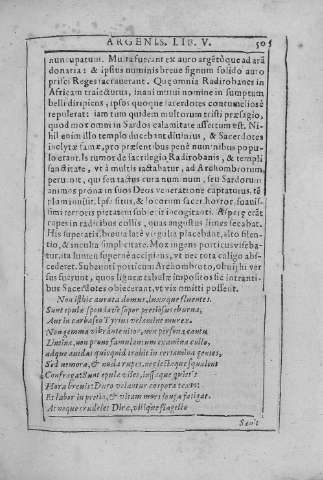 ARGENIS. LIB. V. 505
nuncupatum. Multa fuerant ex auro argētóque ad arā
donaria: & ipsius numinis breue signum solido auro
prisci Reges sacrauerant. Quę omnia Radirobanes in
Africam traiecturus, inani mutui nomine in sumptum
belli diripiens, ipsos quoque sacerdotes contumeliosè
repulerat: iam tum quidem multorum tristi præsagio,
quod mox omni in Sardos calamitate assertum est. Ni-
hil enim illo templo ducebant diuinius, & Sacerdotes
inclytæ famæ, pro præsentibus penè numinibus popu-
lo erant. Is rumor de sacrilegio Radirobanis, & templi
sanctitate, vt à multis iactabatur, ad Archombrotum
peruenit, qui seu tactus cura num num, seu Sardorum
animos prona in suos Deos veneratione captaturus. tē
plam inuisit. Ipse situs, & locorum sacer horror, suauis-
simi terroris pietatem subiecit incogitanti. Asperę erāt
rupes in radicibus collis, quas angustus limes secabat.
His superatis, breuia late virgulta placebant, alto silen-
tio, & inculta simplicitate. Mox ingens porticus viseba-
tur, ita lumen supernè accipiens, vt nec tota caligo abs-
cederet. Subeunti porticum Archombroto, obuij hi ver
sus fuerunt, quos ligneæ tabulæ impositos sic intranti-
bus Sacerdotes obiecerant, vt vis omitti possent.
Non isthic aurata domus, luxúque fluentes
Sunt epulæ, spondáue sopor pretiosus eburna,
Aut in carbaseo Tyrius velamine murex.
Non gemma vibrāte nitor, non persona cantu
Limina, non prono famulantum examina cultu,
adque auidas quicquid trahit in certamina gentes,
Sed nemora, & nuda rupes, neglectæque squalent
Confragæ: Sunt epulæ viles, iussæque quietis
Hora breuis: Duro velantur corpora texto:
Et labor in pretio, & vitam mors longa fatigat.
At neque crudeles Diræ, vilisque flagello
Seuit